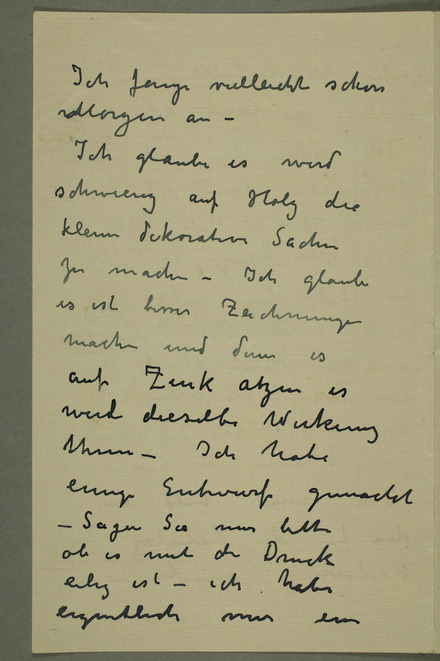 Ich fange vielleicht schon
Morgen an –
Ich glaube es wird
schwierig auf Holz die
kleinen dekorativen Sachen
zu machen – Ich glaube
es ist besser Zeichnungen
machen und dann es
auf Zink atzen es
wird dieselbe Wirkung
thun – Ich habe
einige Entwurfe gemacht
– Sagen Sie mir bitte
ob es mit der Druck
eilig ist – ich habe
eigentlich nur ein